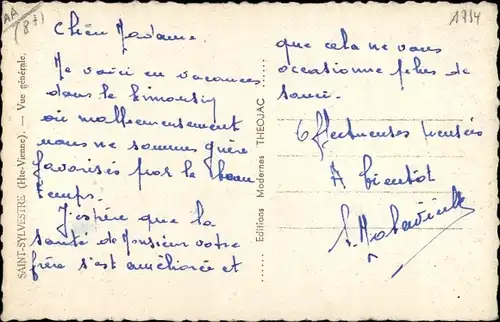 AA
(87)
1714
Chère Madame.
Me voici en vacances
dans le Limousin
où malheureusement
nous ne sommes guère
favorisés par le beau
temps.
J'espère que la
santé de Monsieur votre
frère s'est améliorée et
que cela ne vous
occasionne plus de
souci.
Affectueuses pensées
A bientôt
SAINT-SYLVESTRE (Hte-Vienne). — Vue générale.
Editions Modernes THEOJAC